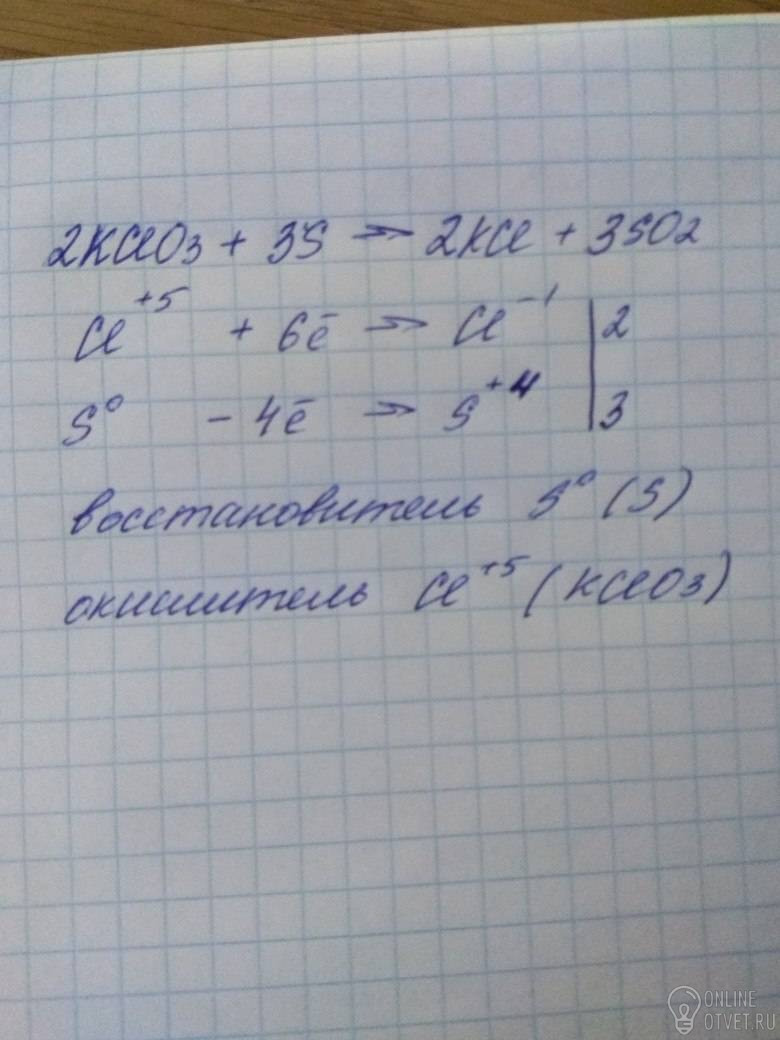 2KClO3 + 3S → 2KCl + 3SO2
Cl+5 + 6ē → Cl-1 | 2
S0 - 4ē → S+4 | 3
восстановитель S0 (S)
окислитель Cl+5 (KClO3)
ONLINE
OTVET.RU